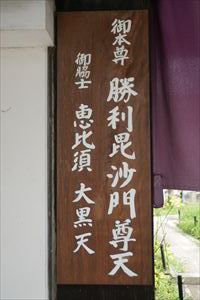 御本尊 勝利毘沙門尊天
御脇士 恵比須 大黒天